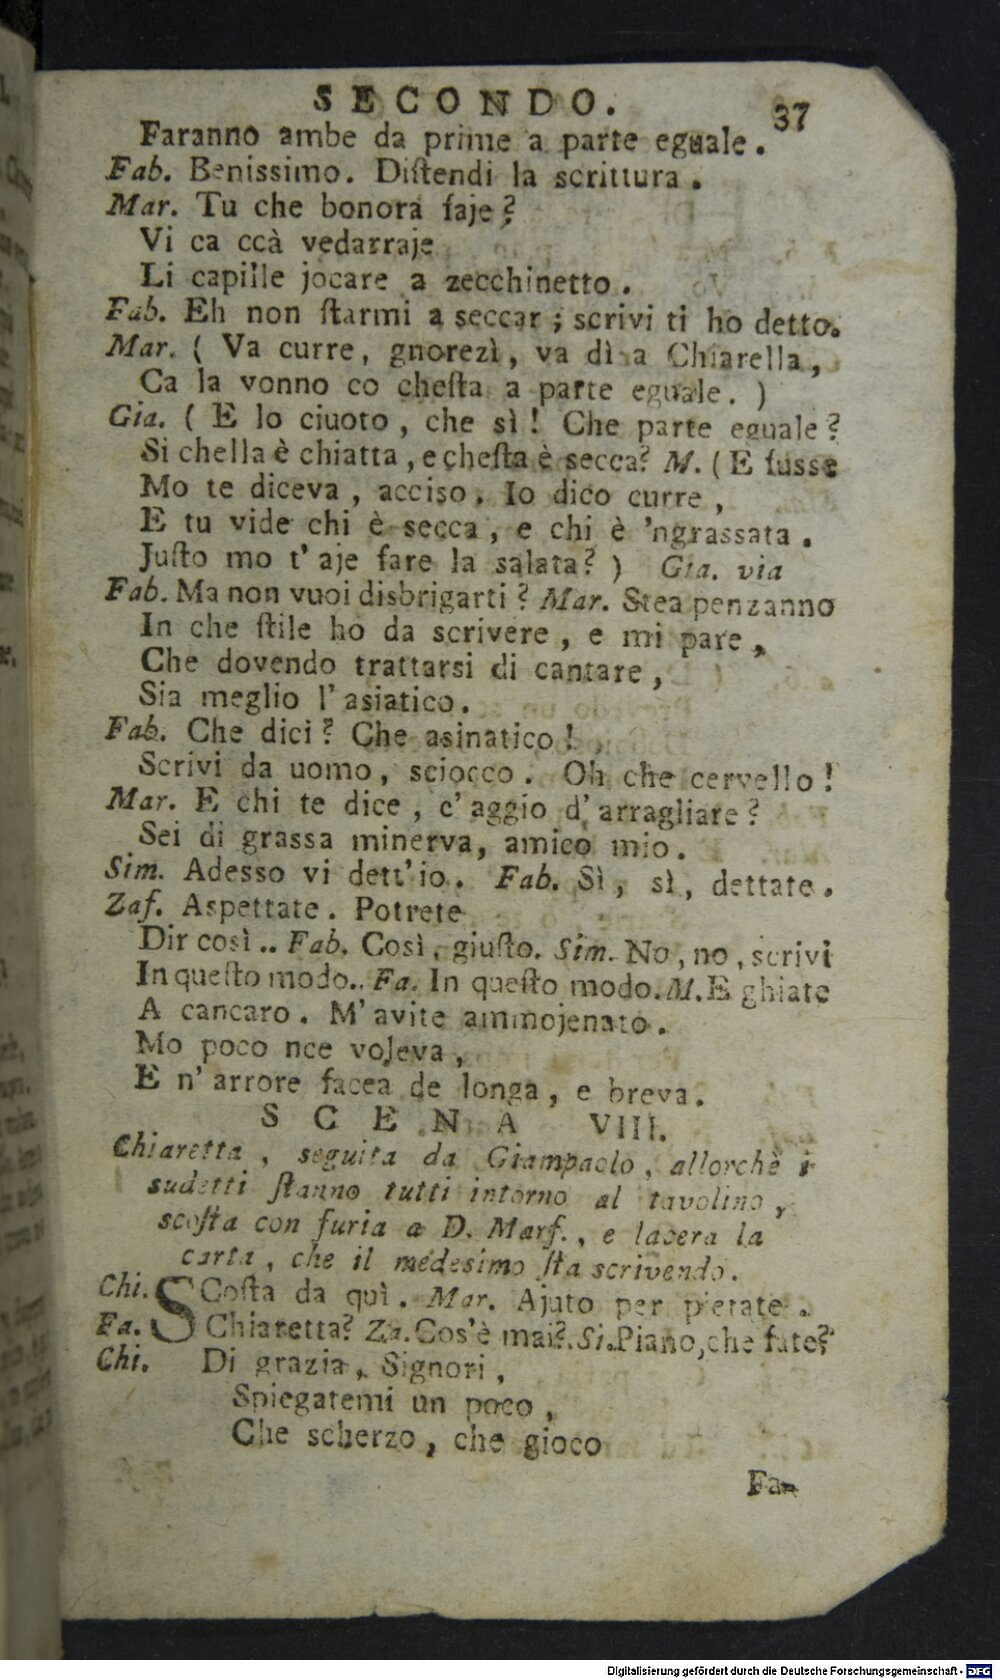 SECONDO. 37
Faranno ambe da prime a parte eguale.
Fab. Benissimo. Diſtendi la scrittura.
Mar. Tu che bonora faje?
Vi ca ccà vedarraje
Li capille jocare a zecchinetto.
Fab. Eh non ſtarmi a seccar; scrivi ti ho detto.
Mar. ( Va curre, gnorezì, va dì a Chiarella,
Ca la vonno co cheſta a parte eguale. )
Gia. ( E lo ciuoto, che sì! Che parte eguale?
Si chella è chiatta, e cheſta è secca? M. ( E fusse
Mo te diceva, acciso. Io dico curre,
E tu vide chi è secca, e chi è 'ngrassata.
Juſto mo t' aje fare la salata? ) Gia. via
Fab. Ma non vuoi disbrigarti? Mar. Stea penzanno
In che ſtile ho da scrivere, e mi pare,
Che dovendo trattarsi di cantare,
Sia meglio l' asiatico.
Fab. Che dici? Che asinatico!
Scrivi da uomo, sciocco. Oh che cervello!
Mar. E chi te dice, c' aggio d' arragliare?
Sei di grassa minerva, amico mio.
Sim. Adesso vi dett' io. Fab. Sì, sì, dettate.
Zaf. Aspettate. Potrete
Dir così.. Fab. Così, giuſto. Sim. No, no, scrivi
In queſto modo.. Fa. In queſto modo. M. E ghiate
A cancaro. M' avite ammojenato.
Mo poco nce voleva,
E n' arrore facea de longa, e breva.
SCENA VIII.
Chiaretta, seguita da Giampaolo, allorchè i
sudetti ſtanno tutti intorno al tavolino,
scoſta con furia a D. Marf., e lacera la
carta, che il medesimo ſta scrivendo.
Chi. SCoſta da quì. Mar. Ajuto per pietate.
Fa. Chiaretta? Za. Cos'è mai? Si. Piano, che fate?
Chi. Di grazia, Signori,
Spiegatemi un poco,
Che scherzo, che gioco
Fa-
Digitalisierung gefördert durch die Deutsche Forschungsgemeinschaft - DFG